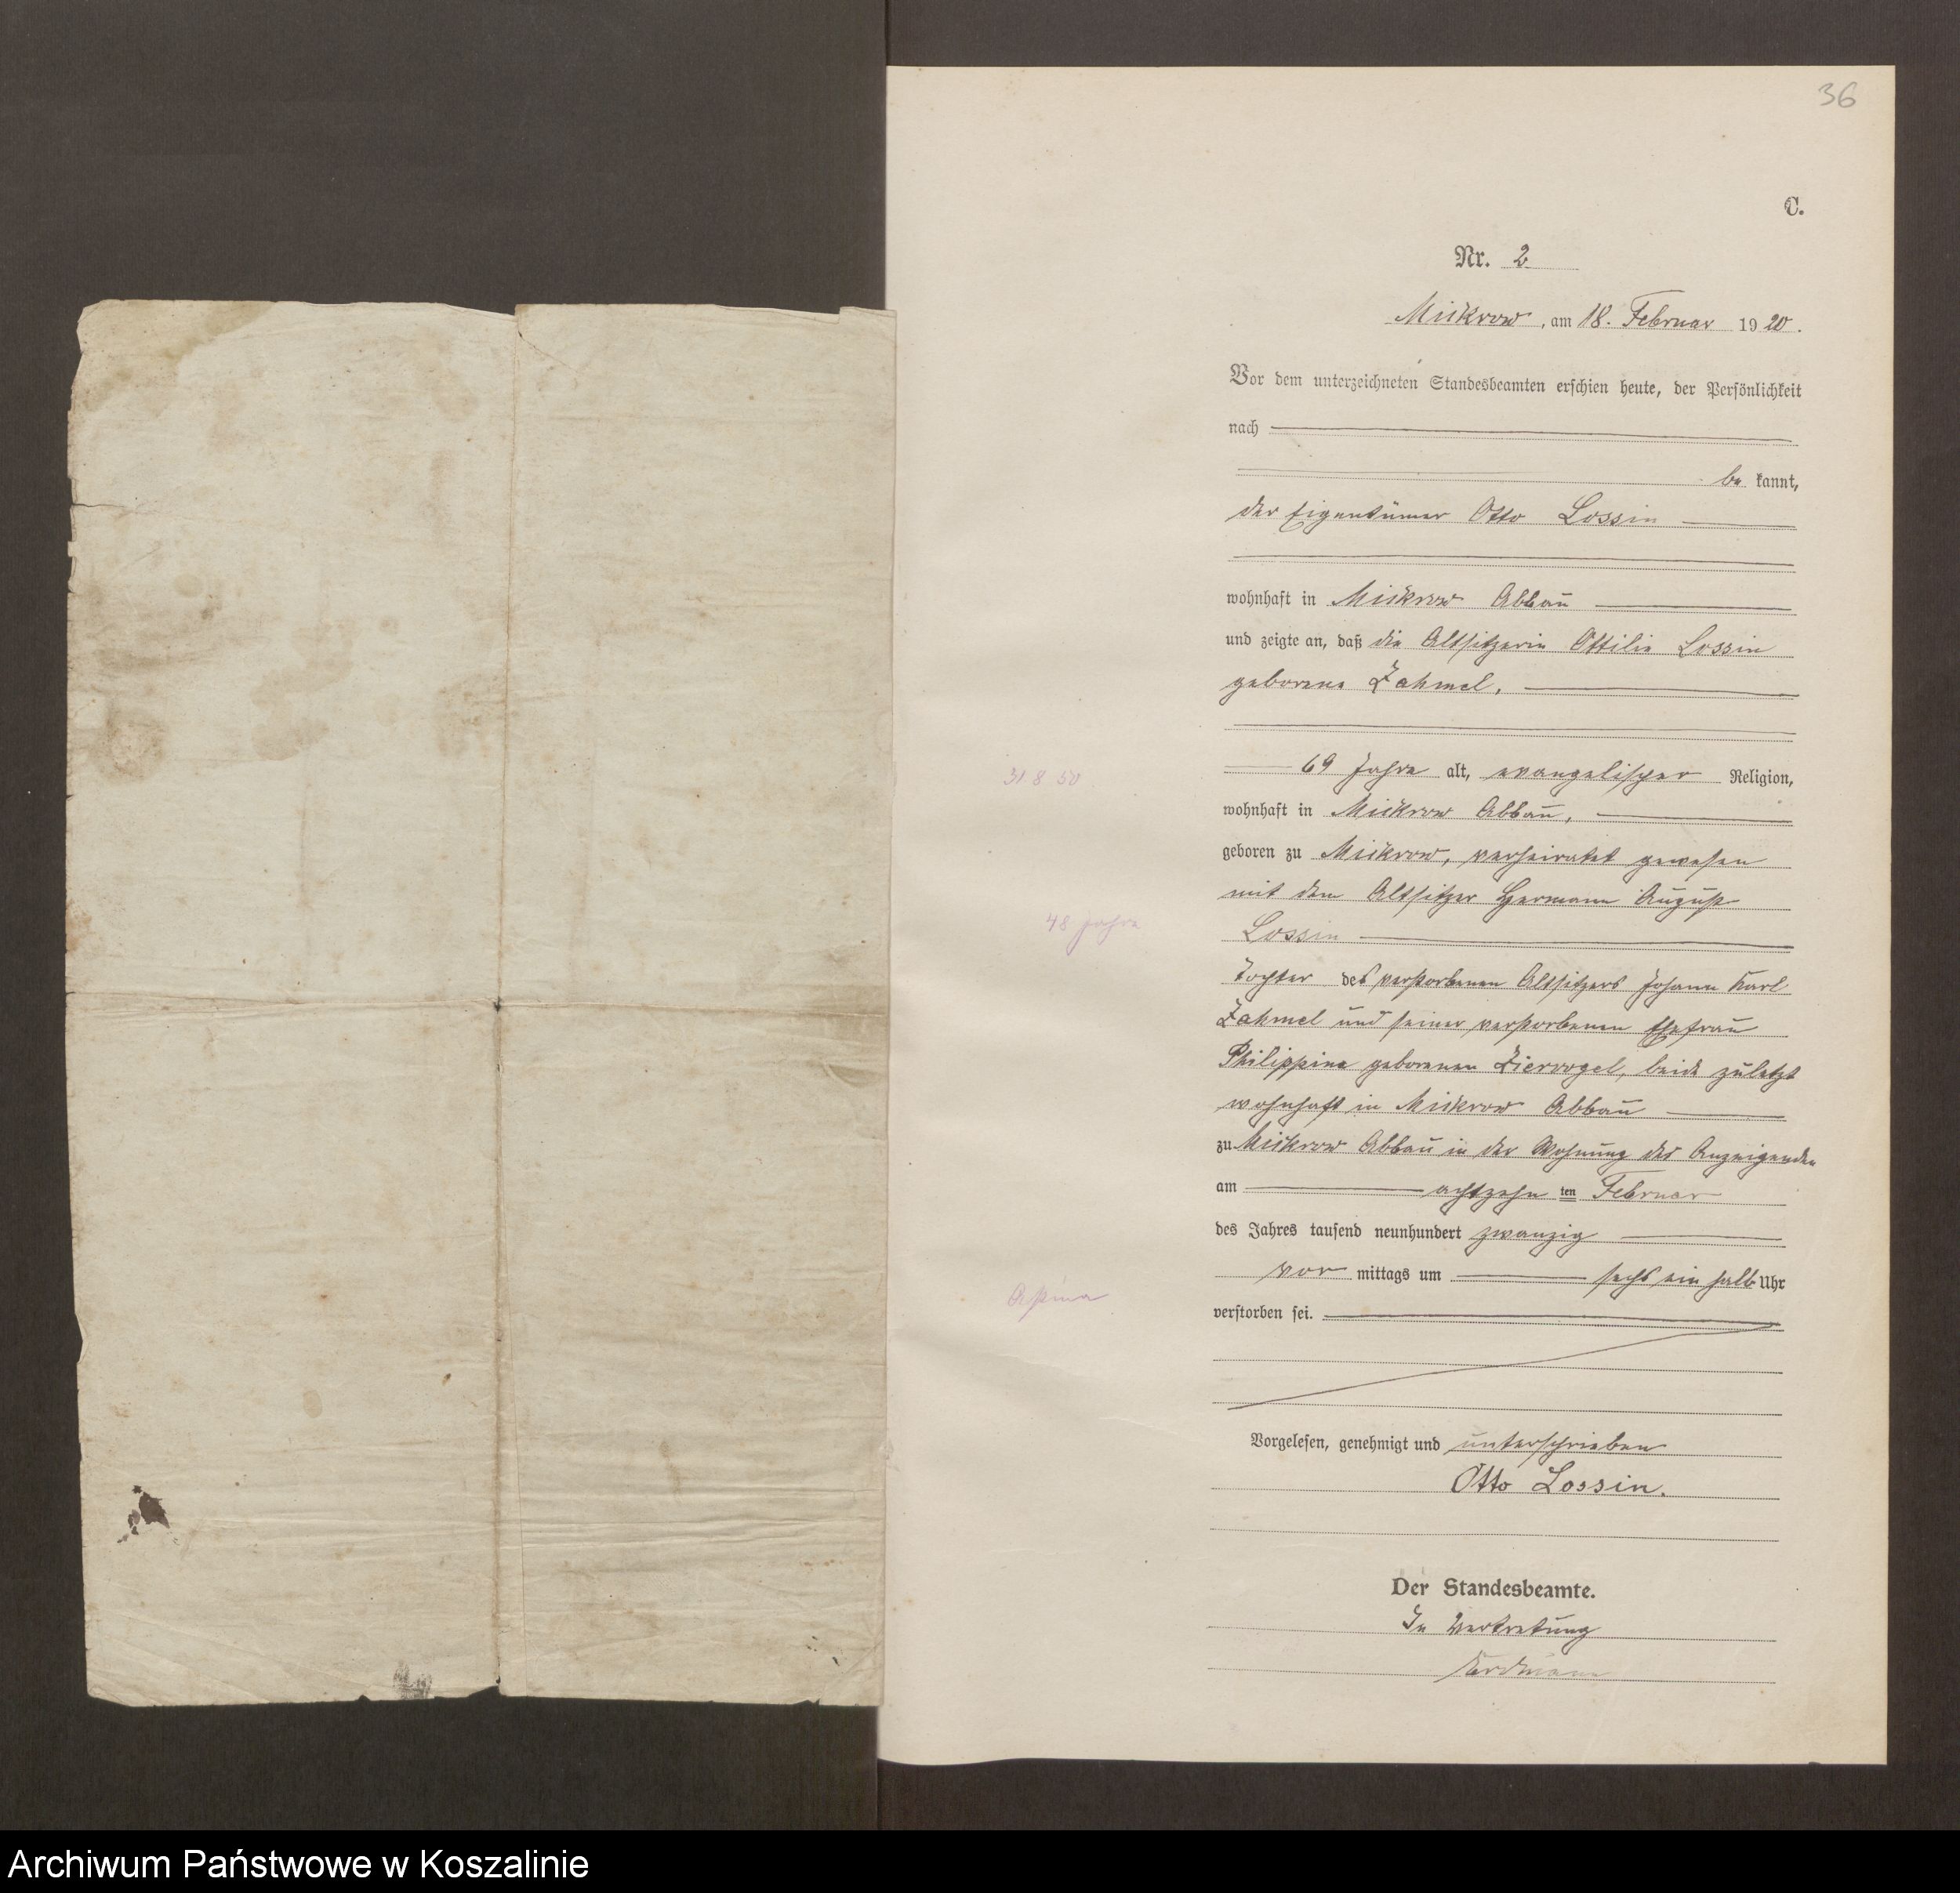 36
C.
Nr. 2
Mickrow, am 18. Februar 1920.
Vor dem unterzeichneten Standesbeamten erschien heute, der Persönlichkeit
nach
be kannt,
der Eigentümer Otto Lossin
wohnhaft in Mickrow Abbau
und zeigte an, daß die Altsitzerin Ottilie Lossin
geborene Zahmel,
31 8 50
69 Jahre alt, evangelischer Religion,
wohnhaft in Mickrow Abbau,
geboren zu Mickrow, verheiratet gewesen
mit dem Altsitzer Hermann August
48 Jahre
Lossin
Tochter des verstorbenen Altsitzers Johann Karl
Zahmel und seiner verstorbenen Ehefrau
Philippine geborenen Ziervogel, beide zuletzt
wohnhaft in Mickrow Abbau
zu Mickrow Abbau in der Wohnung des Anzeigenden
am achtzehn ten Februar
des Jahres tausend neunhundert zwanzig
vor mittags um sechs ein halb Uhr
verstorben sei.
Vorgelesen, genehmigt und unterschrieben
Otto Lossin.
Der Standesbeamte.
In Vertretung
Erdmann
Archiwum Państwowe w Koszalinie